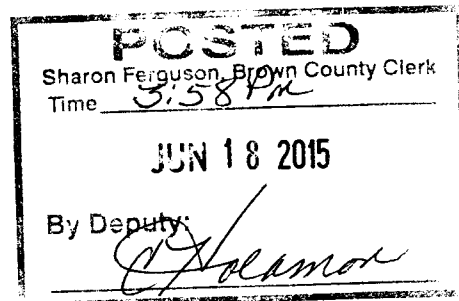 POSTED
Sharon Ferguson, Brown County Clerk
Time 3:58 PM
JUN 18 2015
By Deputy: